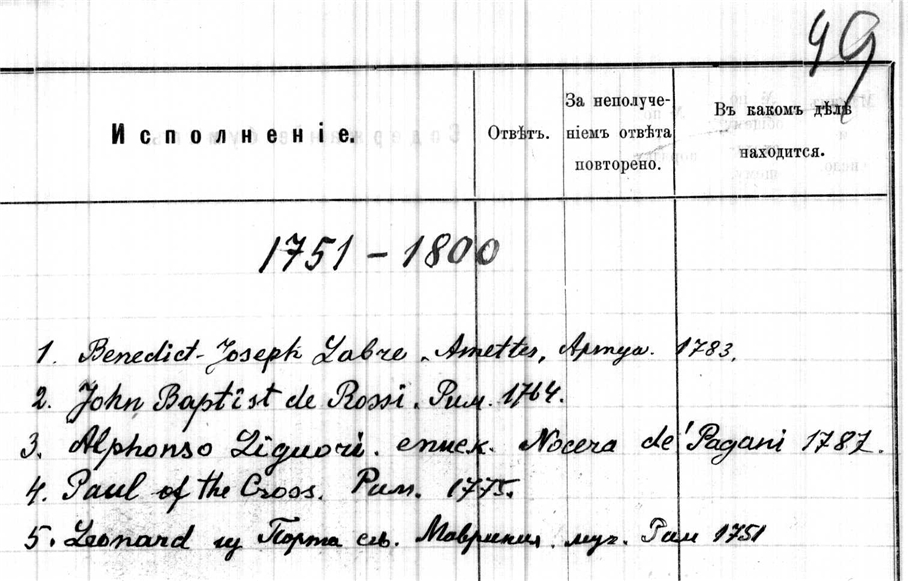 49
Исполненіе. Отвѣтъ. За неполученіемъ отвѣта повторено. Въ какомъ дѣлѣ находится.
1751 – 1800
1. Benedict-Joseph Labre. Amettes, Артуа. 1783.
2. John Baptist de Rossi. Рим. 1764.
3. Alphonso Liguori. еписк. Nocera de' Pagani 1787.
4. Paul of the Cross. Рим. 1775.
5. Leonard Порта св. Маврикия. Рим 1751